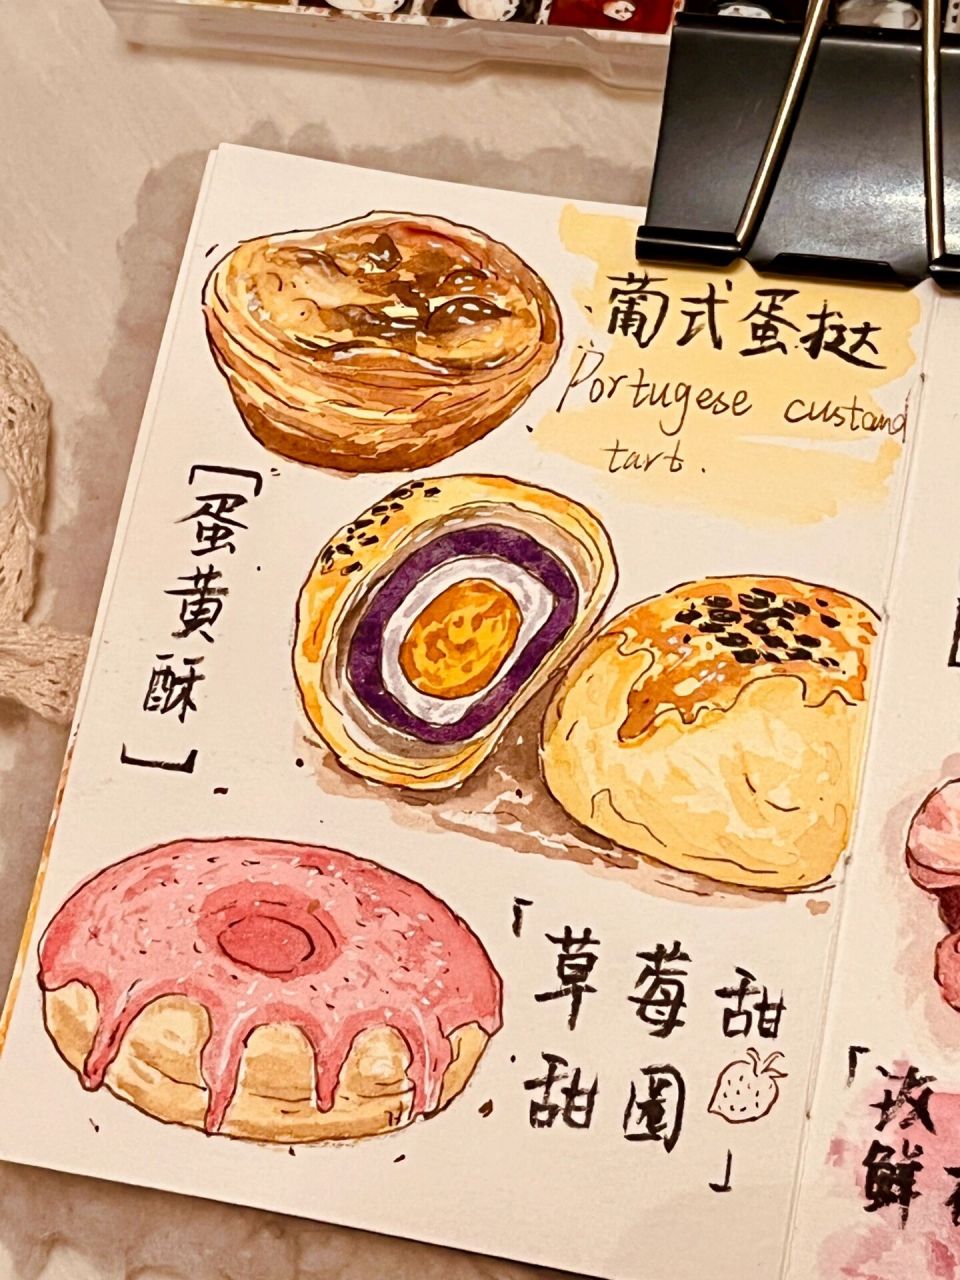 葡式蛋挞
Portugese custard
tart.
[蛋黄酥]
「草莓甜
甜圈」
「
鲜